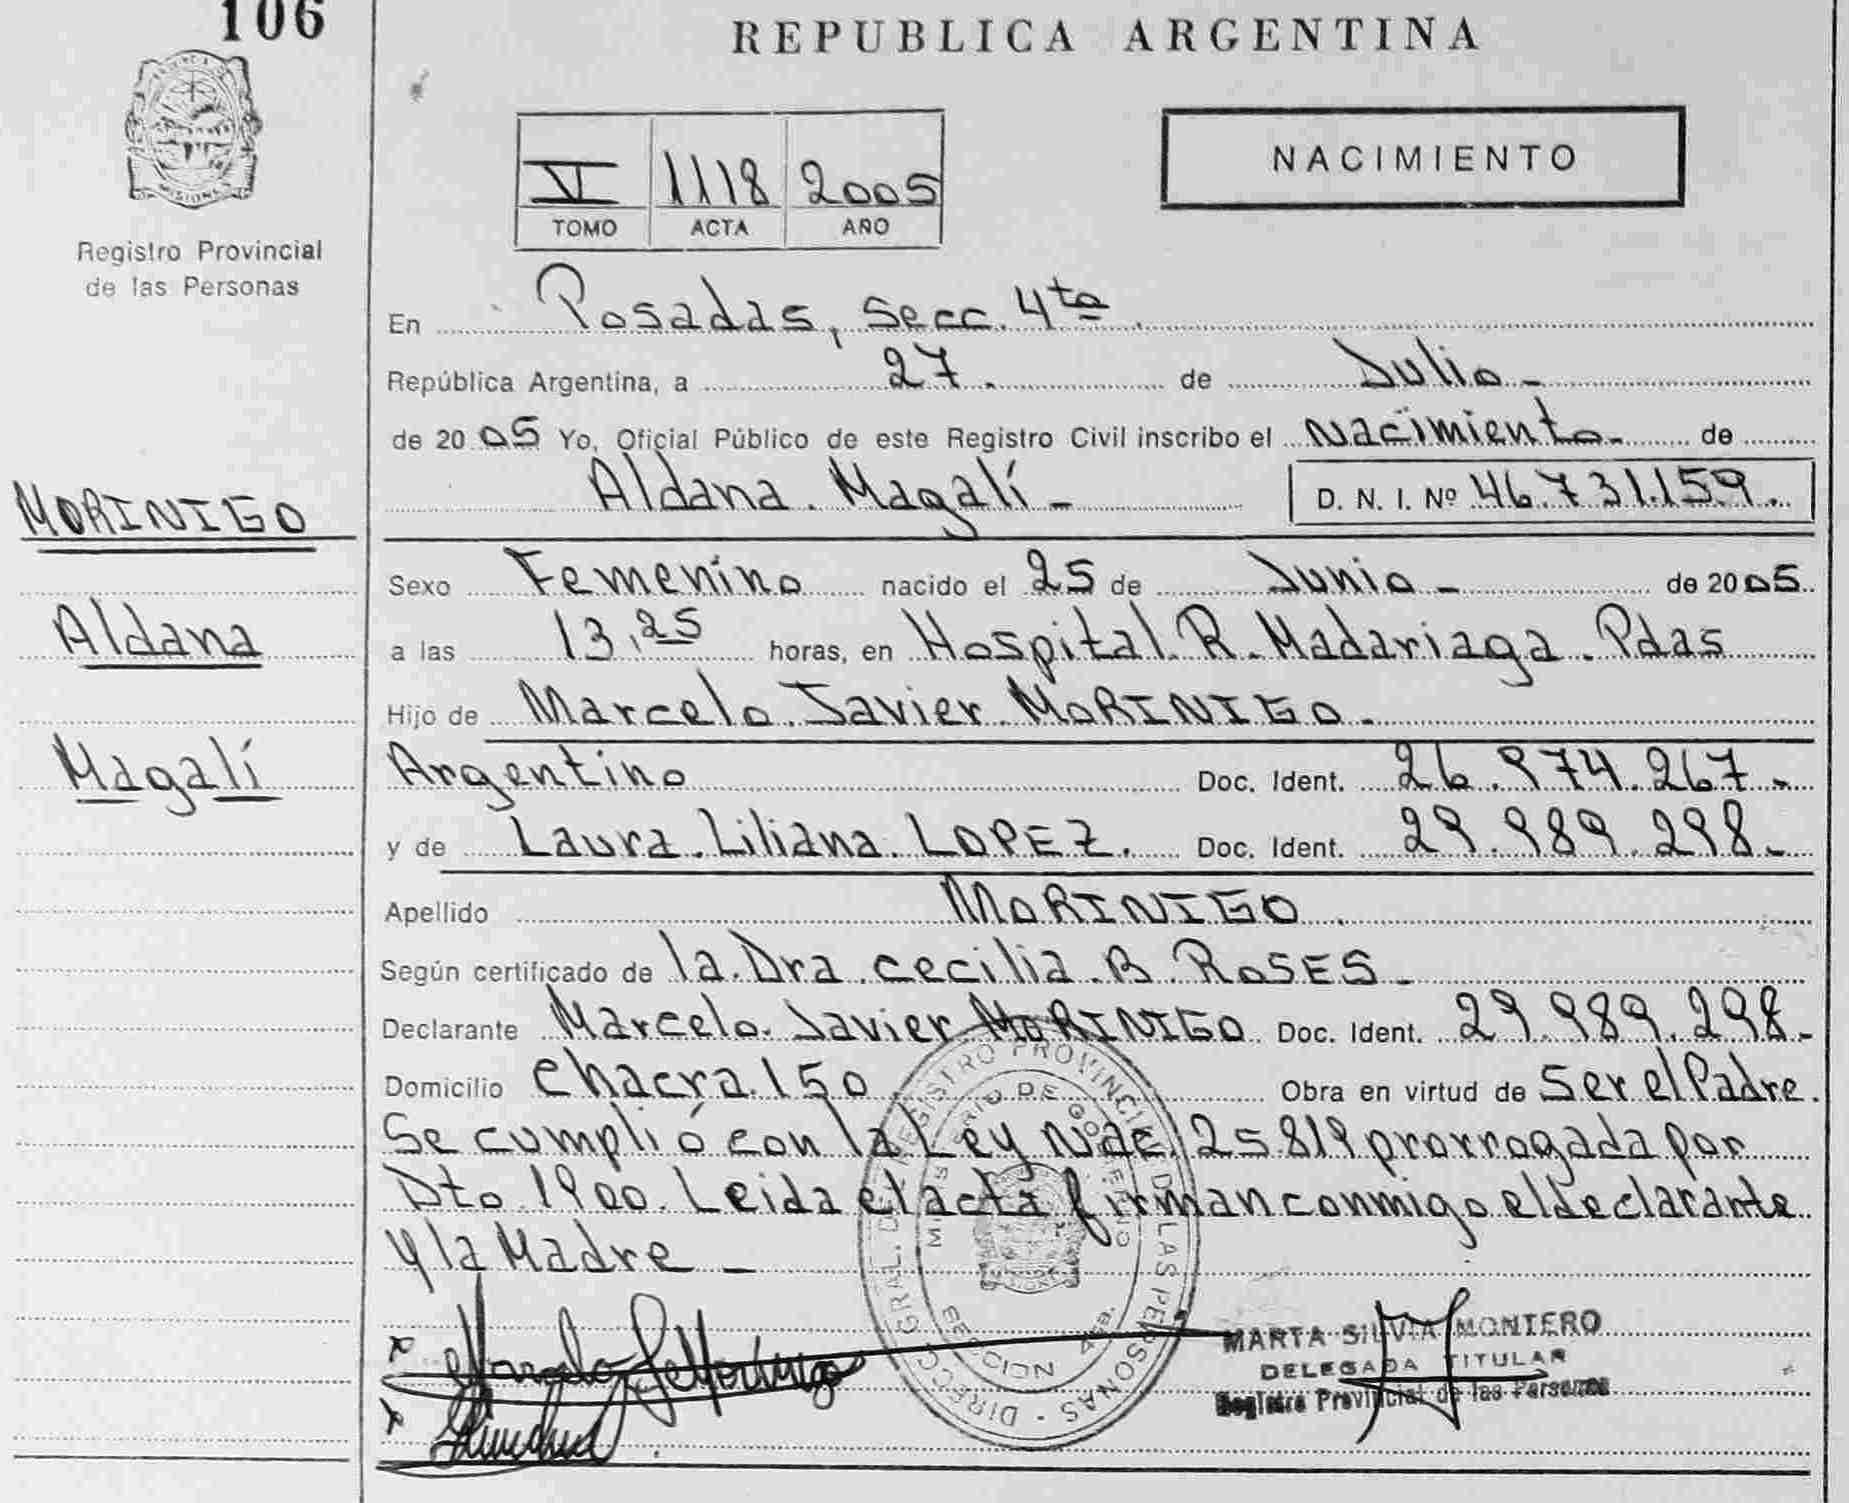 106
REPUBLICA ARGENTINA
MISIONES
Registro Provincial
de las Personas
VI 1118 2005
TOMO ACTA AÑO
NACIMIENTO
En Posadas, Secc. 4ta.
República Argentina, a 27. de Julio-
de 2005 Yo, Oficial Público de este Registro Civil inscribo el Nacimiento- de
Aldana Magalí- D. N. I. Nº 46.731.159.
MORINIGO
Sexo Femenino nacido el 25 de Junio- de 2005.
Aldana
a las 13,25 horas, en Hospital R. Madariaga. Pdas
Hijo de Marcelo Javier MORINIGO.
Magalí
Argentino Doc. Ident. 26.974.267.-
y de Laura Liliana LOPEZ. Doc. Ident. 29.989.298.-
Apellido MORINIGO.
Según certificado de la Dra cecilia B. ROSES-
Declarante Marcelo Javier MORINIGO Doc. Ident. 29.989.298.-
Domicilio Chacra 150 Obra en virtud de Ser el Padre.
Se cumplió con la Ley Nac. 25819 prorrogada por
Dto 1900. Leida el acta firman conmigo el declarante
y la Madre-
DIRECC. GRAL. DEL REGISTRO PROVINCIAL DE LAS PERSONAS
MINISTERIO DE GOBIERNO
SECCION 4ta.
MARTA SILVIA MONTERO
DELEGADA TITULAR
Registro Provincial de las Personas